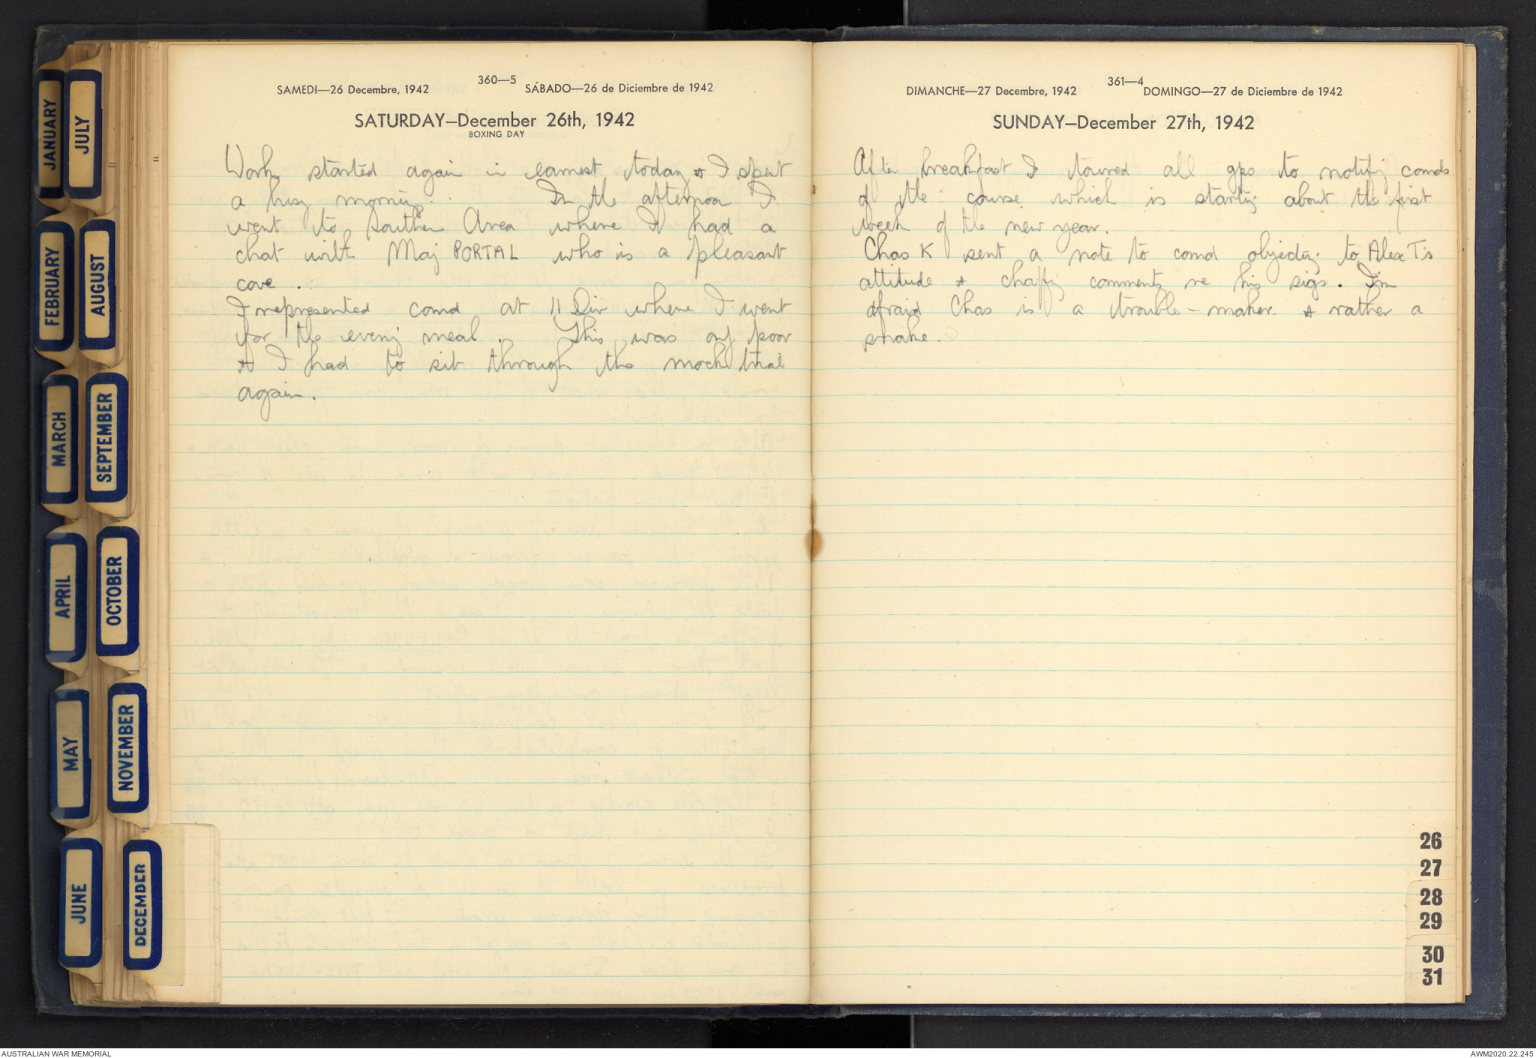 JANUARY
JULY
FEBRUARY
AUGUST
MARCH
SEPTEMBER
APRIL
OCTOBER
MAY
NOVEMBER
JUNE
DECEMBER
360—5
SAMEDI—26 Decembre, 1942 SÁBADO—26 de Diciembre de 1942
SATURDAY—December 26th, 1942
BOXING DAY
Work started again in earnest today & I spent
a busy morning. In the afternoon I
went to Southern Area where I had a
chat with Maj PORTAL who is a pleasant
cove.
I represented comd at 11 Div where I went
for the evening meal. This was only poor
& I had to sit through the mock trial
again.
361—4
DIMANCHE—27 Decembre, 1942 DOMINGO—27 de Diciembre de 1942
SUNDAY—December 27th, 1942
After breakfast I toured all gps to notify comds
of the course which is starting about the first
week of the new year.
Chas K sent a note to comd objecting to Alex T's
attitude & chaffing comments re his sigs. I'm
afraid Chas is a trouble-maker & rather a
snake.
26
27
28
29
30
31
AUSTRALIAN WAR MEMORIAL
AWM2020.22.245